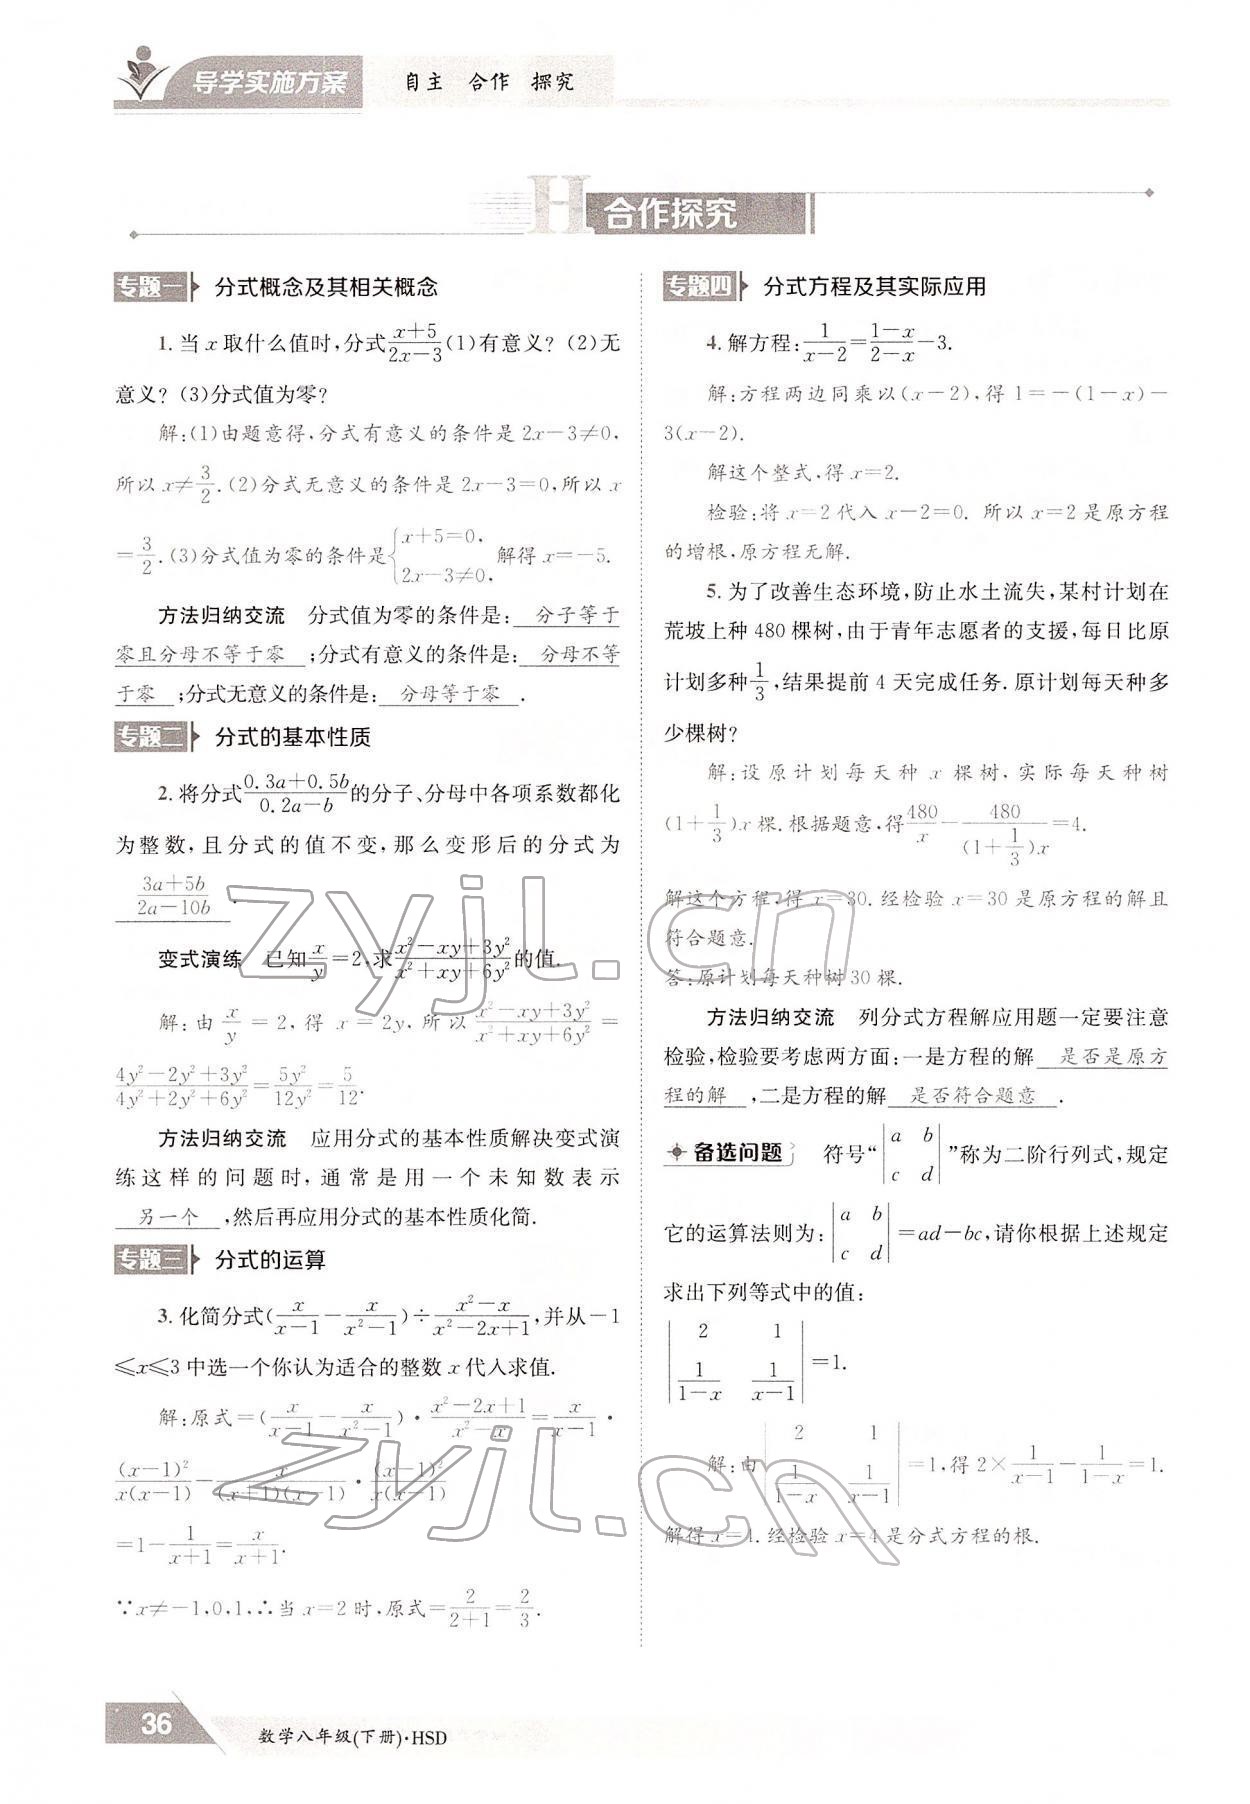 导学实施方案 自主 合作 探究
H 合作探究
专题一 分式概念及其相关概念
1. 当 x 取什么值时,分式(x+5)/(2x-3)(1)有意义? (2)无
意义? (3)分式值为零?
解:(1)由题意得,分式有意义的条件是 2x-3≠0,
所以 x≠3/2.(2)分式无意义的条件是 2x-3=0,所以 x
=3/2.(3)分式值为零的条件是{x+5=0, 2x-3≠0, 解得 x=-5.
方法归纳交流 分式值为零的条件是: 分子等于
零且分母不等于零 ;分式有意义的条件是: 分母不等
于零 ;分式无意义的条件是: 分母等于零 .
专题二 分式的基本性质
2. 将分式(0.3a+0.5b)/(0.2a-b)的分子、分母中各项系数都化
为整数,且分式的值不变,那么变形后的分式为
(3a+5b)/(2a-10b) .
变式演练 已知x/y=2,求(x²-xy+3y²)/(x²+xy+6y²)的值.
解:由 x/y = 2, 得 x = 2y, 所以 (x²-xy+3y²)/(x²+xy+6y²) =
(4y²-2y²+3y²)/(4y²+2y²+6y²)=5y²/12y²=5/12.
方法归纳交流 应用分式的基本性质解决变式演
练这样的问题时,通常是用一个未知数表示
另一个 ,然后再应用分式的基本性质化简.
专题三 分式的运算
3. 化简分式(x/(x-1)-x/(x²-1))÷(x²-x)/(x²-2x+1),并从-1
≤x≤3 中选一个你认为适合的整数 x 代入求值.
解:原式=(x/(x-1)-x/(x²-1))·(x²-2x+1)/(x²-x)=x/(x-1)·
(x-1)²/x(x-1)-x/(x+1)(x-1)·(x-1)²/x(x-1)
=1-1/(x+1)=x/(x+1).
∵x≠-1,0,1,∴当 x=2 时,原式=2/(2+1)=2/3.
专题四 分式方程及其实际应用
4. 解方程:1/(x-2)=(1-x)/(2-x)-3.
解:方程两边同乘以(x-2),得 1=-(1-x)-
3(x-2).
解这个整式,得 x=2.
检验:将 x=2 代入 x-2=0. 所以 x=2 是原方程
的增根,原方程无解.
5. 为了改善生态环境,防止水土流失,某村计划在
荒坡上种 480 棵树,由于青年志愿者的支援,每日比原
计划多种1/3,结果提前 4 天完成任务. 原计划每天种多
少棵树?
解:设原计划每天种 x 棵树,实际每天种树
(1+1/3)x 棵. 根据题意,得480/x-480/((1+1/3)x)=4.
解这个方程,得 x=30. 经检验 x=30 是原方程的解且
符合题意.
答:原计划每天种树 30 棵.
方法归纳交流 列分式方程解应用题一定要注意
检验,检验要考虑两方面:一是方程的解 是否是原方
程的解 ,二是方程的解 是否符合题意 .
备选问题 符号“|a b; c d|”称为二阶行列式,规定
它的运算法则为:|a b; c d|=ad-bc,请你根据上述规定
求出下列等式中的值:
|2 1; 1/(1-x) 1/(x-1)|=1.
解:由|2 1; 1/(1-x) 1/(x-1)|=1,得 2×1/(x-1)-1/(1-x)=1.
解得 x=4. 经检验 x=4 是分式方程的根.
36 数学八年级(下册)·HSD
zyjl.cn
zyjl.cn